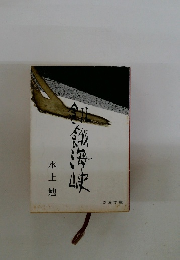 飢餓海峡
水上 勉